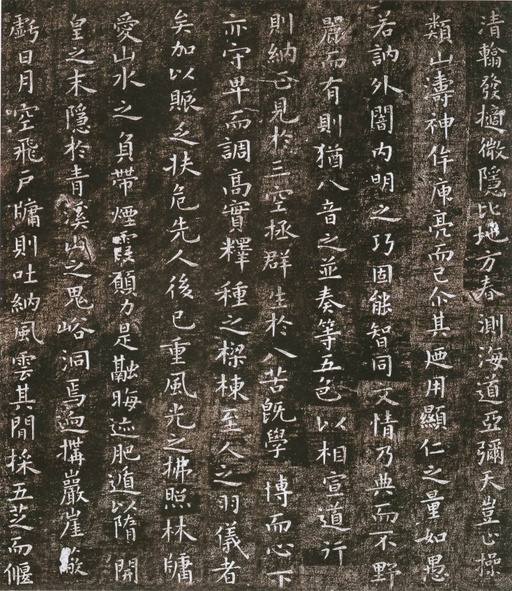 清翰發擿微隱比地方春測海道亞彌天豈止操
類山濤神侔庾亮而已尒其迺用顯仁之量如愚
若訥外闇內明之巧固能智同 文情乃典而不野
麗而有則猶八音之並奏等五色以相宣道行
則納正見於三空拯群生於八苦既學博而心下
亦守卑而調高實釋種之樑棟至人之羽儀者
矣加以賑乏扶危先人後己重風光之拂照林牖
愛山水之負帶煙霞願力是融晦迹肥遁以隋開
皇之末隱於青溪山之鬼峪洞焉迺構巖崖蔽
虧日月空飛戶牖則吐納風雲其間採五芝而偃